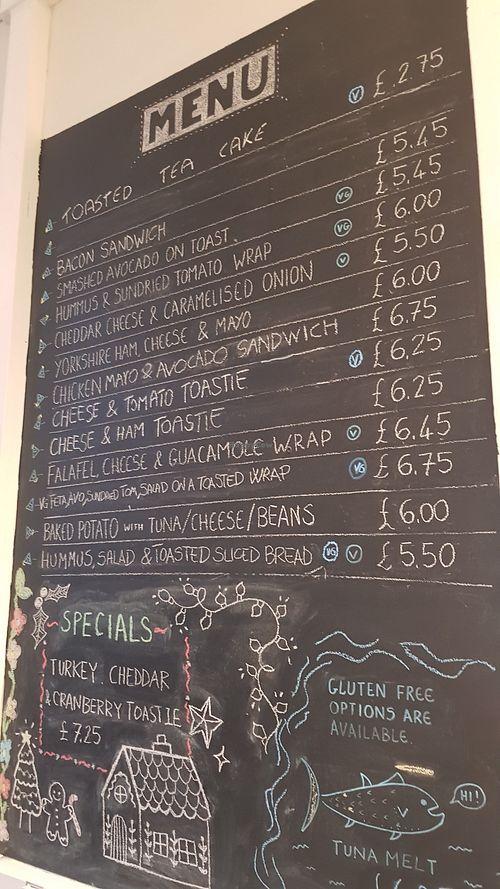 MENU
TOASTED TEA CAKE V £2.75
BACON SANDWICH £5.45
SMASHED AVOCADO ON TOAST. VG £5.45
HUMMUS & SUNDRIED TOMATO WRAP VG £6.00
CHEDDAR CHEESE & CARAMELISED ONION V £5.50
YORKSHIRE HAM, CHEESE & MAYO £6.00
CHICKEN MAYO & AVOCADO SANDWICH £6.75
CHEESE & TOMATO TOASTIE V £6.25
CHEESE & HAM TOASTIE £6.25
FALAFEL, CHEESE & GUACAMOLE WRAP V £6.45
VG FETA, AVO, SUNDRIED TOM, SALAD ON A TOASTED WRAP VG £6.75
BAKED POTATO WITH TUNA/CHEESE/BEANS £6.00
HUMMUS, SALAD & TOASTED SLICED BREAD VG V £5.50
SPECIALS
TURKEY. CHEDDAR
& CRANBERRY TOASTIE
£7.25
GLUTEN FREE
OPTIONS ARE
AVAILABLE.
HI!
TUNA MELT